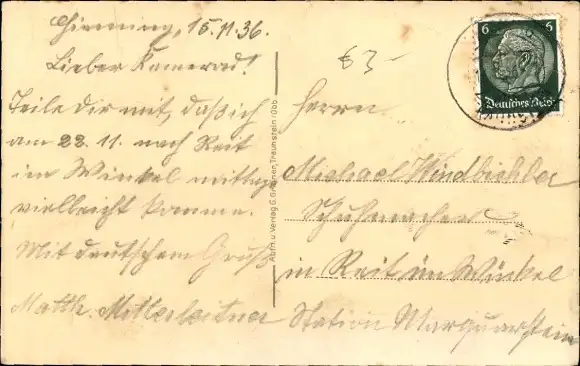 Chieming, 15.11.36.
Lieber Kamerad!
Teile Dir mit, daß ich
am 22. 11. nach Reit
im Winkel mittag
vielleicht komme.
Mit deutschem Gruß
Matth. Mitterleitner
Aufn. u. Verlag G. Traunstein/Obb.
63-
6 6
Deutsches Reich
Herrn
Michael Windbichler
Schuhmacher
in Reit im Winkel
Station Marquarstein